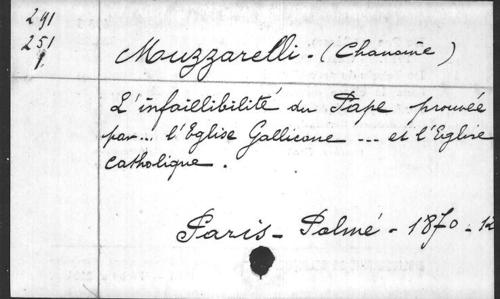 291
251
1.
Muzzarelli. (Chanoine)
L'infaillibilité du Pape prouvée
par... l'Eglise Gallicane ... et l'Eglise
catholique.
Paris - Palmé - 1870 - 12